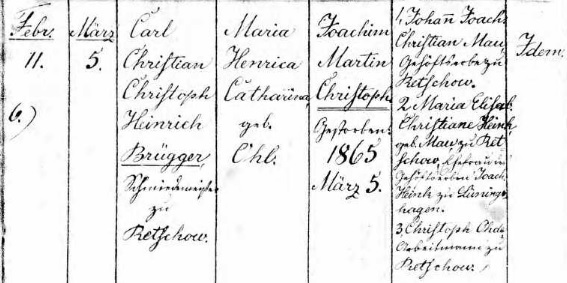 Febr.
11.
6.)
März
5.
Carl
Christian
Christoph
Heinrich
Brügger,
Schmiedemeister
zu
Retschow.
Maria
Henrica
Catharina
geb.
Ohl.
Joachim
Martin
Christoph
Gestorben:
1865
März 5.
1, Johan̄ Joach.
Christian Mau
Gehöftserbe zu
Retschow.
2, Maria Elisab.
Christiane Heink
geb. Mau zu Ret
schow, Ehefrau d.
Gehöftserben Joach.
Heink zu
hagen.
3, Christoph
Arbeitsmann zu
Retschow.
Idem.